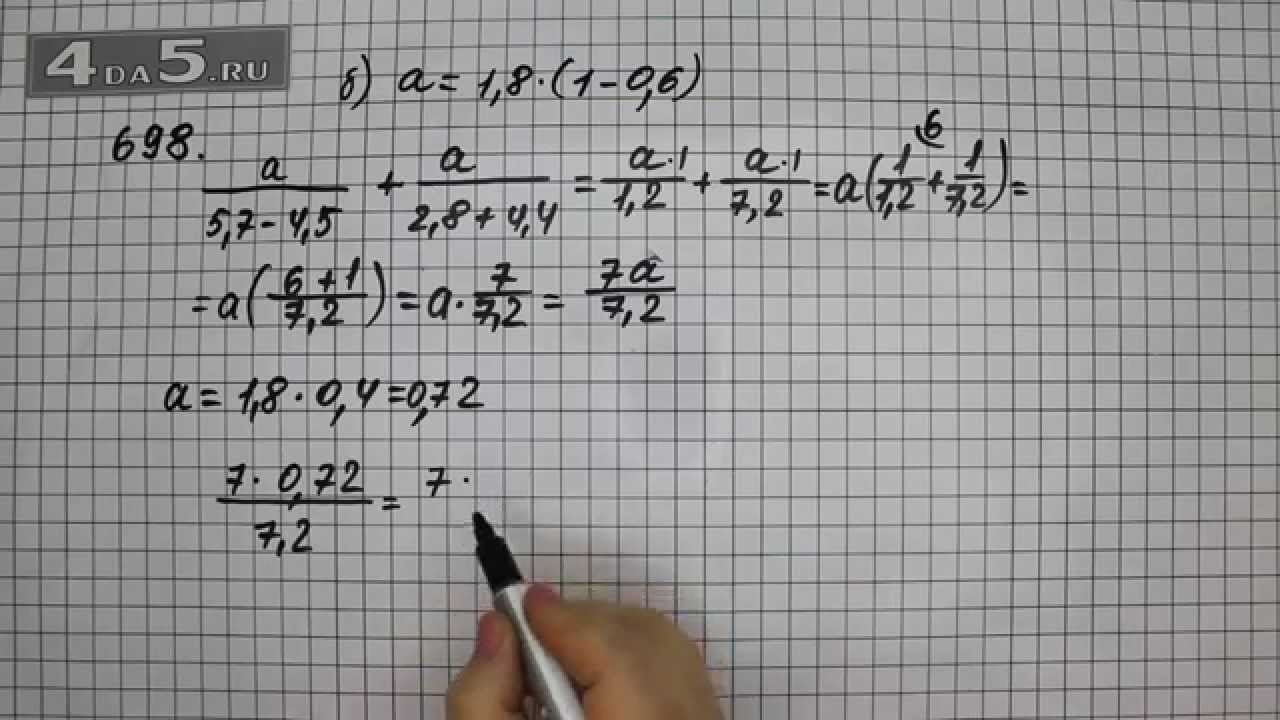 4DA5.RU
б) a = 1,8 · (1 - 0,6)
698.
a/(5,7 - 4,5) + a/(2,8 + 4,4) = a·1/1,2 + a·1/7,2 = a(1/1,2 + 1/7,2) =
6
= a((6 + 1)/7,2) = a · 7/7,2 = 7a/7,2
a = 1,8 · 0,4 = 0,72
7 · 0,72/7,2 = 7 ·